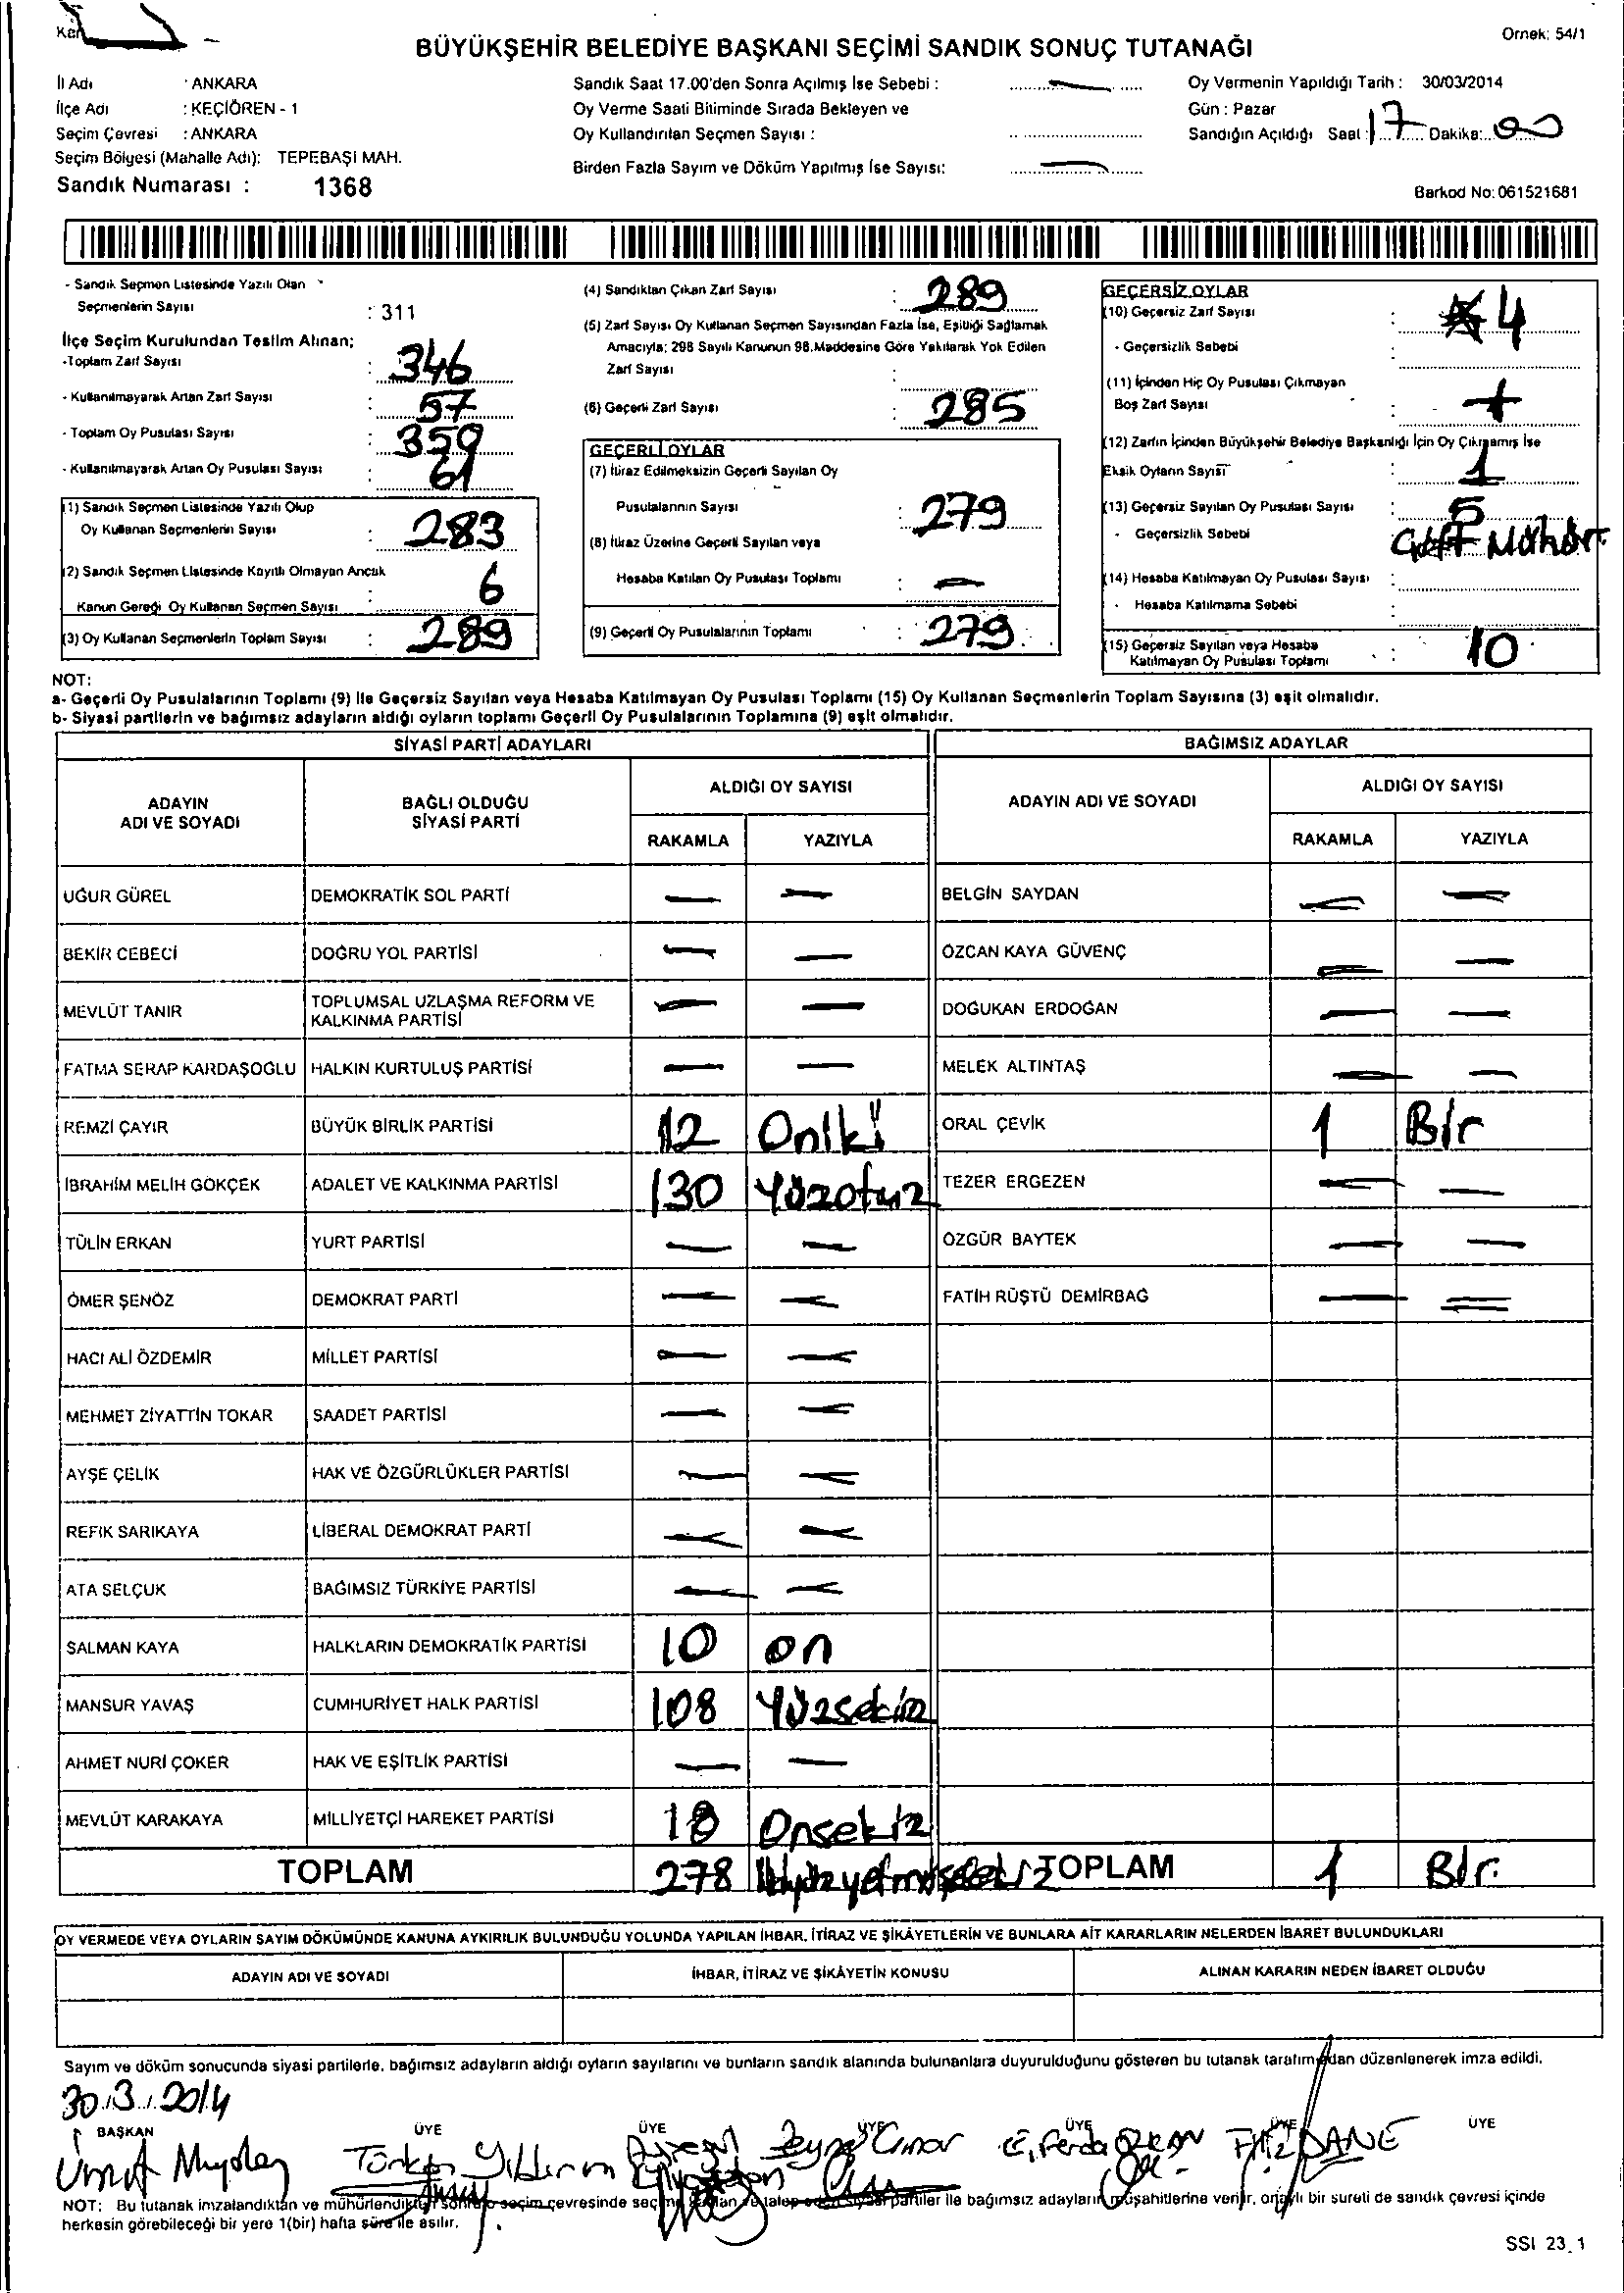 BÜYÜKŞEHİR BELEDİYE BAŞKANI SEÇİMİ SANDIK SONUÇ TUTANAĞI
Örnek: 54/1
İl Adı : ANKARA
İlçe Adı : KEÇİÖREN - 1
Seçim Çevresi : ANKARA
Seçim Bölgesi (Mahalle Adı): TEPEBAŞI MAH.
Sandık Numarası : 1368
Sandık Saat 17.00'den Sonra Açılmış İse Sebebi : —
Oy Verme Saati Bitiminde Sırada Bekleyen ve
Oy Kullandırılan Seçmen Sayısı :
Birden Fazla Sayım ve Döküm Yapılmış İse Sayısı: —
Oy Vermenin Yapıldığı Tarih : 30/03/2014
Gün : Pazar
Sandığın Açıldığı Saat : 17 Dakika: 00
Barkod No: 061521681
- Sandık Seçmen Listesinde Yazılı Olan
Seçmenlerin Sayısı : 311
İlçe Seçim Kurulundan Teslim Alınan;
-Toplam Zarf Sayısı : 346
- Kullanılmayarak Artan Zarf Sayısı : 57
- Toplam Oy Pusulası Sayısı : 350
- Kullanılmayarak Artan Oy Pusulası Sayısı : 61
(1) Sandık Seçmen Listesinde Yazılı Olup
Oy Kullanan Seçmenlerin Sayısı : 283
(2) Sandık Seçmen Listesinde Kayıtlı Olmayan Ancak
Kanun Gereği Oy Kullanan Seçmen Sayısı : 6
(3) Oy Kullanan Seçmenlerin Toplam Sayısı : 289
(4) Sandıktan Çıkan Zarf Sayısı : 289
(5) Zarf Sayısı Oy Kullanan Seçmen Sayısından Fazla İse, Eşitliği Sağlamak
Amacıyla; 298 Sayılı Kanunun 98.Maddesine Göre Yakılarak Yok Edilen
Zarf Sayısı :
(6) Geçerli Zarf Sayısı : 285
GEÇERLİ OYLAR
(7) İtiraz Edilmeksizin Geçerli Sayılan Oy
Pusulalarının Sayısı : 279
(8) İtiraz Üzerine Geçerli Sayılan veya
Hesaba Katılan Oy Pusulası Toplamı : —
(9) Geçerli Oy Pusulalarının Toplamı : 279
GEÇERSİZ OYLAR
(10) Geçersiz Zarf Sayısı : 4
- Geçersizlik Sebebi :
(11) İçinden Hiç Oy Pusulası Çıkmayan
Boş Zarf Sayısı :
(12) Zarfın İçinden Büyükşehir Belediye Başkanlığı İçin Oy Çıkmamış İse
Eksik Oyların Sayısı : 1
(13) Geçersiz Sayılan Oy Pusulası Sayısı : 5
- Geçersizlik Sebebi : Çift Mühür.
(14) Hesaba Katılmayan Oy Pusulası Sayısı :
- Hesaba Katılmama Sebebi :
(15) Geçersiz Sayılan veya Hesaba
Katılmayan Oy Pusulası Toplamı : 10
NOT:
a- Geçerli Oy Pusulalarının Toplamı (9) İle Geçersiz Sayılan veya Hesaba Katılmayan Oy Pusulası Toplamı (15) Oy Kullanan Seçmenlerin Toplam Sayısına (3) eşit olmalıdır.
b- Siyasi partilerin ve bağımsız adayların aldığı oyların toplamı Geçerli Oy Pusulalarının Toplamına (9) eşit olmalıdır.
SİYASİ PARTİ ADAYLARI
BAĞIMSIZ ADAYLAR
ADAYIN
ADI VE SOYADI
BAĞLI OLDUĞU
SİYASİ PARTİ
ALDIĞI OY SAYISI
RAKAMLA YAZIYLA
ADAYIN ADI VE SOYADI
ALDIĞI OY SAYISI
RAKAMLA YAZIYLA
UĞUR GÜREL DEMOKRATİK SOL PARTİ — — BELGİN SAYDAN — —
BEKİR CEBECİ DOĞRU YOL PARTİSİ — — ÖZCAN KAYA GÜVENÇ — —
MEVLÜT TANIR TOPLUMSAL UZLAŞMA REFORM VE
KALKINMA PARTİSİ — — DOĞUKAN ERDOĞAN — —
FATMA SERAP KARDAŞOĞLU HALKIN KURTULUŞ PARTİSİ — — MELEK ALTINTAŞ — —
REMZİ ÇAYIR BÜYÜK BİRLİK PARTİSİ 12 Oniki ORAL ÇEVİK 1 Bir
İBRAHİM MELİH GÖKÇEK ADALET VE KALKINMA PARTİSİ 130 Yüzotuz TEZER ERGEZEN — —
TÜLİN ERKAN YURT PARTİSİ — — ÖZGÜR BAYTEK — —
ÖMER ŞENÖZ DEMOKRAT PARTİ — — FATİH RÜŞTÜ DEMİRBAĞ — —
HACI ALİ ÖZDEMİR MİLLET PARTİSİ — —
MEHMET ZİYATTİN TOKAR SAADET PARTİSİ — —
AYŞE ÇELİK HAK VE ÖZGÜRLÜKLER PARTİSİ — —
REFİK SARIKAYA LİBERAL DEMOKRAT PARTİ — —
ATA SELÇUK BAĞIMSIZ TÜRKİYE PARTİSİ — —
SALMAN KAYA HALKLARIN DEMOKRATİK PARTİSİ 10 on
MANSUR YAVAŞ CUMHURİYET HALK PARTİSİ 108 Yüzsekiz
AHMET NURİ ÇOKER HAK VE EŞİTLİK PARTİSİ — —
MEVLÜT KARAKAYA MİLLİYETÇİ HAREKET PARTİSİ 18 Onsekiz
TOPLAM 278 İkiyüzyetmişsekiz TOPLAM 1 Bir.
OY VERMEDE VEYA OYLARIN SAYIM DÖKÜMÜNDE KANUNA AYKIRILIK BULUNDUĞU YOLUNDA YAPILAN İHBAR, İTİRAZ VE ŞİKÂYETLERİN VE BUNLARA AİT KARARLARIN NELERDEN İBARET BULUNDUKLARI
ADAYIN ADI VE SOYADI İHBAR, İTİRAZ VE ŞİKÂYETİN KONUSU ALINAN KARARIN NEDEN İBARET OLDUĞU
Sayım ve döküm sonucunda siyasi partilerle, bağımsız adayların aldığı oyların sayılarını ve bunların sandık alanında bulunanlara duyurulduğunu gösteren bu tutanak tarafımızdan düzenlenerek imza edildi.
30.3.2014
BAŞKAN ÜYE ÜYE ÜYE ÜYE ÜYE ÜYE
Umut Türkan Yıldırım Zeynep Çınar Ferda ÖZKAN
NOT: Bu tutanak imzalandıktan ve mühürlendikten sonra o seçim çevresinde seçime katılan ve talep eden siyasi partiler ile bağımsız adayların müşahitlerine verilir, onaylı bir sureti de sandık çevresi içinde
herkesin görebileceği bir yere 1(bir) hafta süre ile asılır.
SSI 23_1